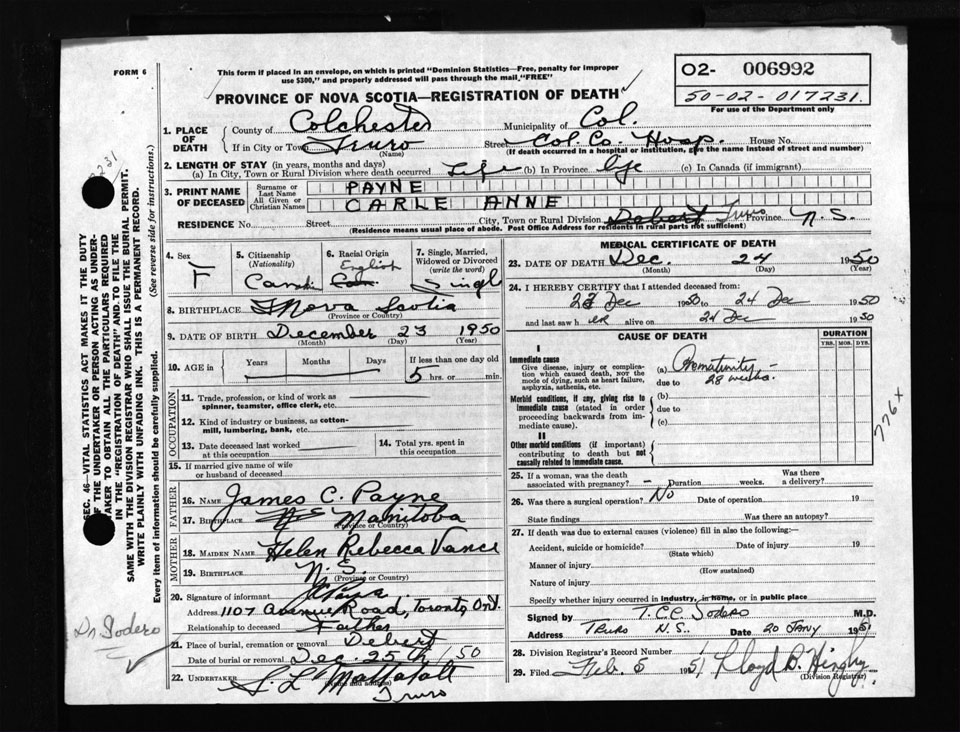 FORM 6
This form if placed in an envelope, on which is printed "Dominion Statistics—Free, penalty for improper
use $300," and properly addressed will pass through the mail "FREE"
O2- 006992
50-02-017231.
For use of the Department only
PROVINCE OF NOVA SCOTIA—REGISTRATION OF DEATH
1. PLACE OF DEATH
County of Colchester Municipality of Col.
If in City or Town Truro Street Col. Co. Hosp. House No.
(Name) (If death occurred in a hospital or institution, give the name instead of street and number)
2. LENGTH OF STAY (in years, months and days)
(a) In City, Town or Rural Division where death occurred Life (b) In Province Life (c) In Canada (if immigrant)
3. PRINT NAME OF DECEASED
Surname or Last Name PAYNE
All Given or Christian Names CARLE ANNE
RESIDENCE No. Street City, Town or Rural Division Debert Truro Province N.S.
(Residence means usual place of abode. Post Office Address for residents in rural parts not sufficient)
4. Sex F
5. Citizenship (Nationality)
6. Racial Origin English Can.
7. Single, Married, Widowed or Divorced (write the word) Single
8. BIRTHPLACE Nova Scotia
(Province or Country)
9. DATE OF BIRTH December 23 1950
(Month) (Day) (Year)
10. AGE in Years Months Days If less than one day old
5 hrs. or min.
OCCUPATION
11. Trade, profession, or kind of work as
spinner, teamster, office clerk, etc.
12. Kind of industry or business, as cotton-
mill, lumbering, bank, etc.
13. Date deceased last worked at this occupation
14. Total yrs. spent in this occupation
15. If married give name of wife
or husband of deceased
FATHER
16. NAME James C. Payne
17. BIRTHPLACE Manitoba
(Province or Country)
MOTHER
18. MAIDEN NAME Helen Rebecca Vance
19. BIRTHPLACE N.S.
(Province or Country)
20. Signature of informant
Address 1107 Avenue Road, Toronto Ont.
Relationship to deceased Father
21. Place of burial, cremation or removal Debert
Date of burial or removal Dec. 25th / 50
22. UNDERTAKER S. L. Mattatall
(Name and address)
Truro
MEDICAL CERTIFICATE OF DEATH
23. DATE OF DEATH Dec. 24 1950
(Month) (Day) (Year)
24. I HEREBY CERTIFY that I attended deceased from:
23 Dec 1950 to 24 Dec 1950
and last saw her alive on 24 Dec 1950
CAUSE OF DEATH
DURATION
YRS. MOS. DYS.
I
Immediate cause
Give disease, injury or complica-
tion which caused death, NOT the
mode of dying, such as heart failure,
asphyxia, asthenia, etc.
(a) Prematurity -
due to 28 weeks.
Morbid conditions, if any, giving rise to
immediate cause (stated in order
proceeding backwards from im-
mediate cause).
(b)
due to
(c)
II
Other morbid conditions (if important)
contributing to death but not
causally related to immediate cause.
776x
25. If a woman, was the death
associated with pregnancy? - Duration weeks. Was there a delivery?
26. Was there a surgical operation? No Date of operation 19
State findings Was there an autopsy?
27. If death was due to external causes (violence) fill in also the following:—
Accident, suicide or homicide? Date of injury 19
(State which)
Manner of injury
(How sustained)
Nature of injury
Specify whether injury occurred in industry, in home, or in public place
Signed by T.C.C. Sodero M.D.
Address Truro N.S. Date 20 Jany 1951
28. Division Registrar's Record Number
29. Filed Feb. 5 1951 Lloyd D.
(Division Registrar)
SEC. 46—VITAL STATISTICS ACT MAKES IT THE DUTY
OF THE UNDERTAKER OR PERSON ACTING AS UNDER-
TAKER TO OBTAIN ALL THE PARTICULARS REQUIRED
IN THE "REGISTRATION OF DEATH" AND TO FILE THE
SAME WITH THE DIVISION REGISTRAR WHO SHALL ISSUE THE BURIAL PERMIT.
WRITE PLAINLY WITH UNFADING INK. THIS IS A PERMANENT RECORD.
Every item of information should be carefully supplied. (See reverse side for instructions.)
Dr Sodero